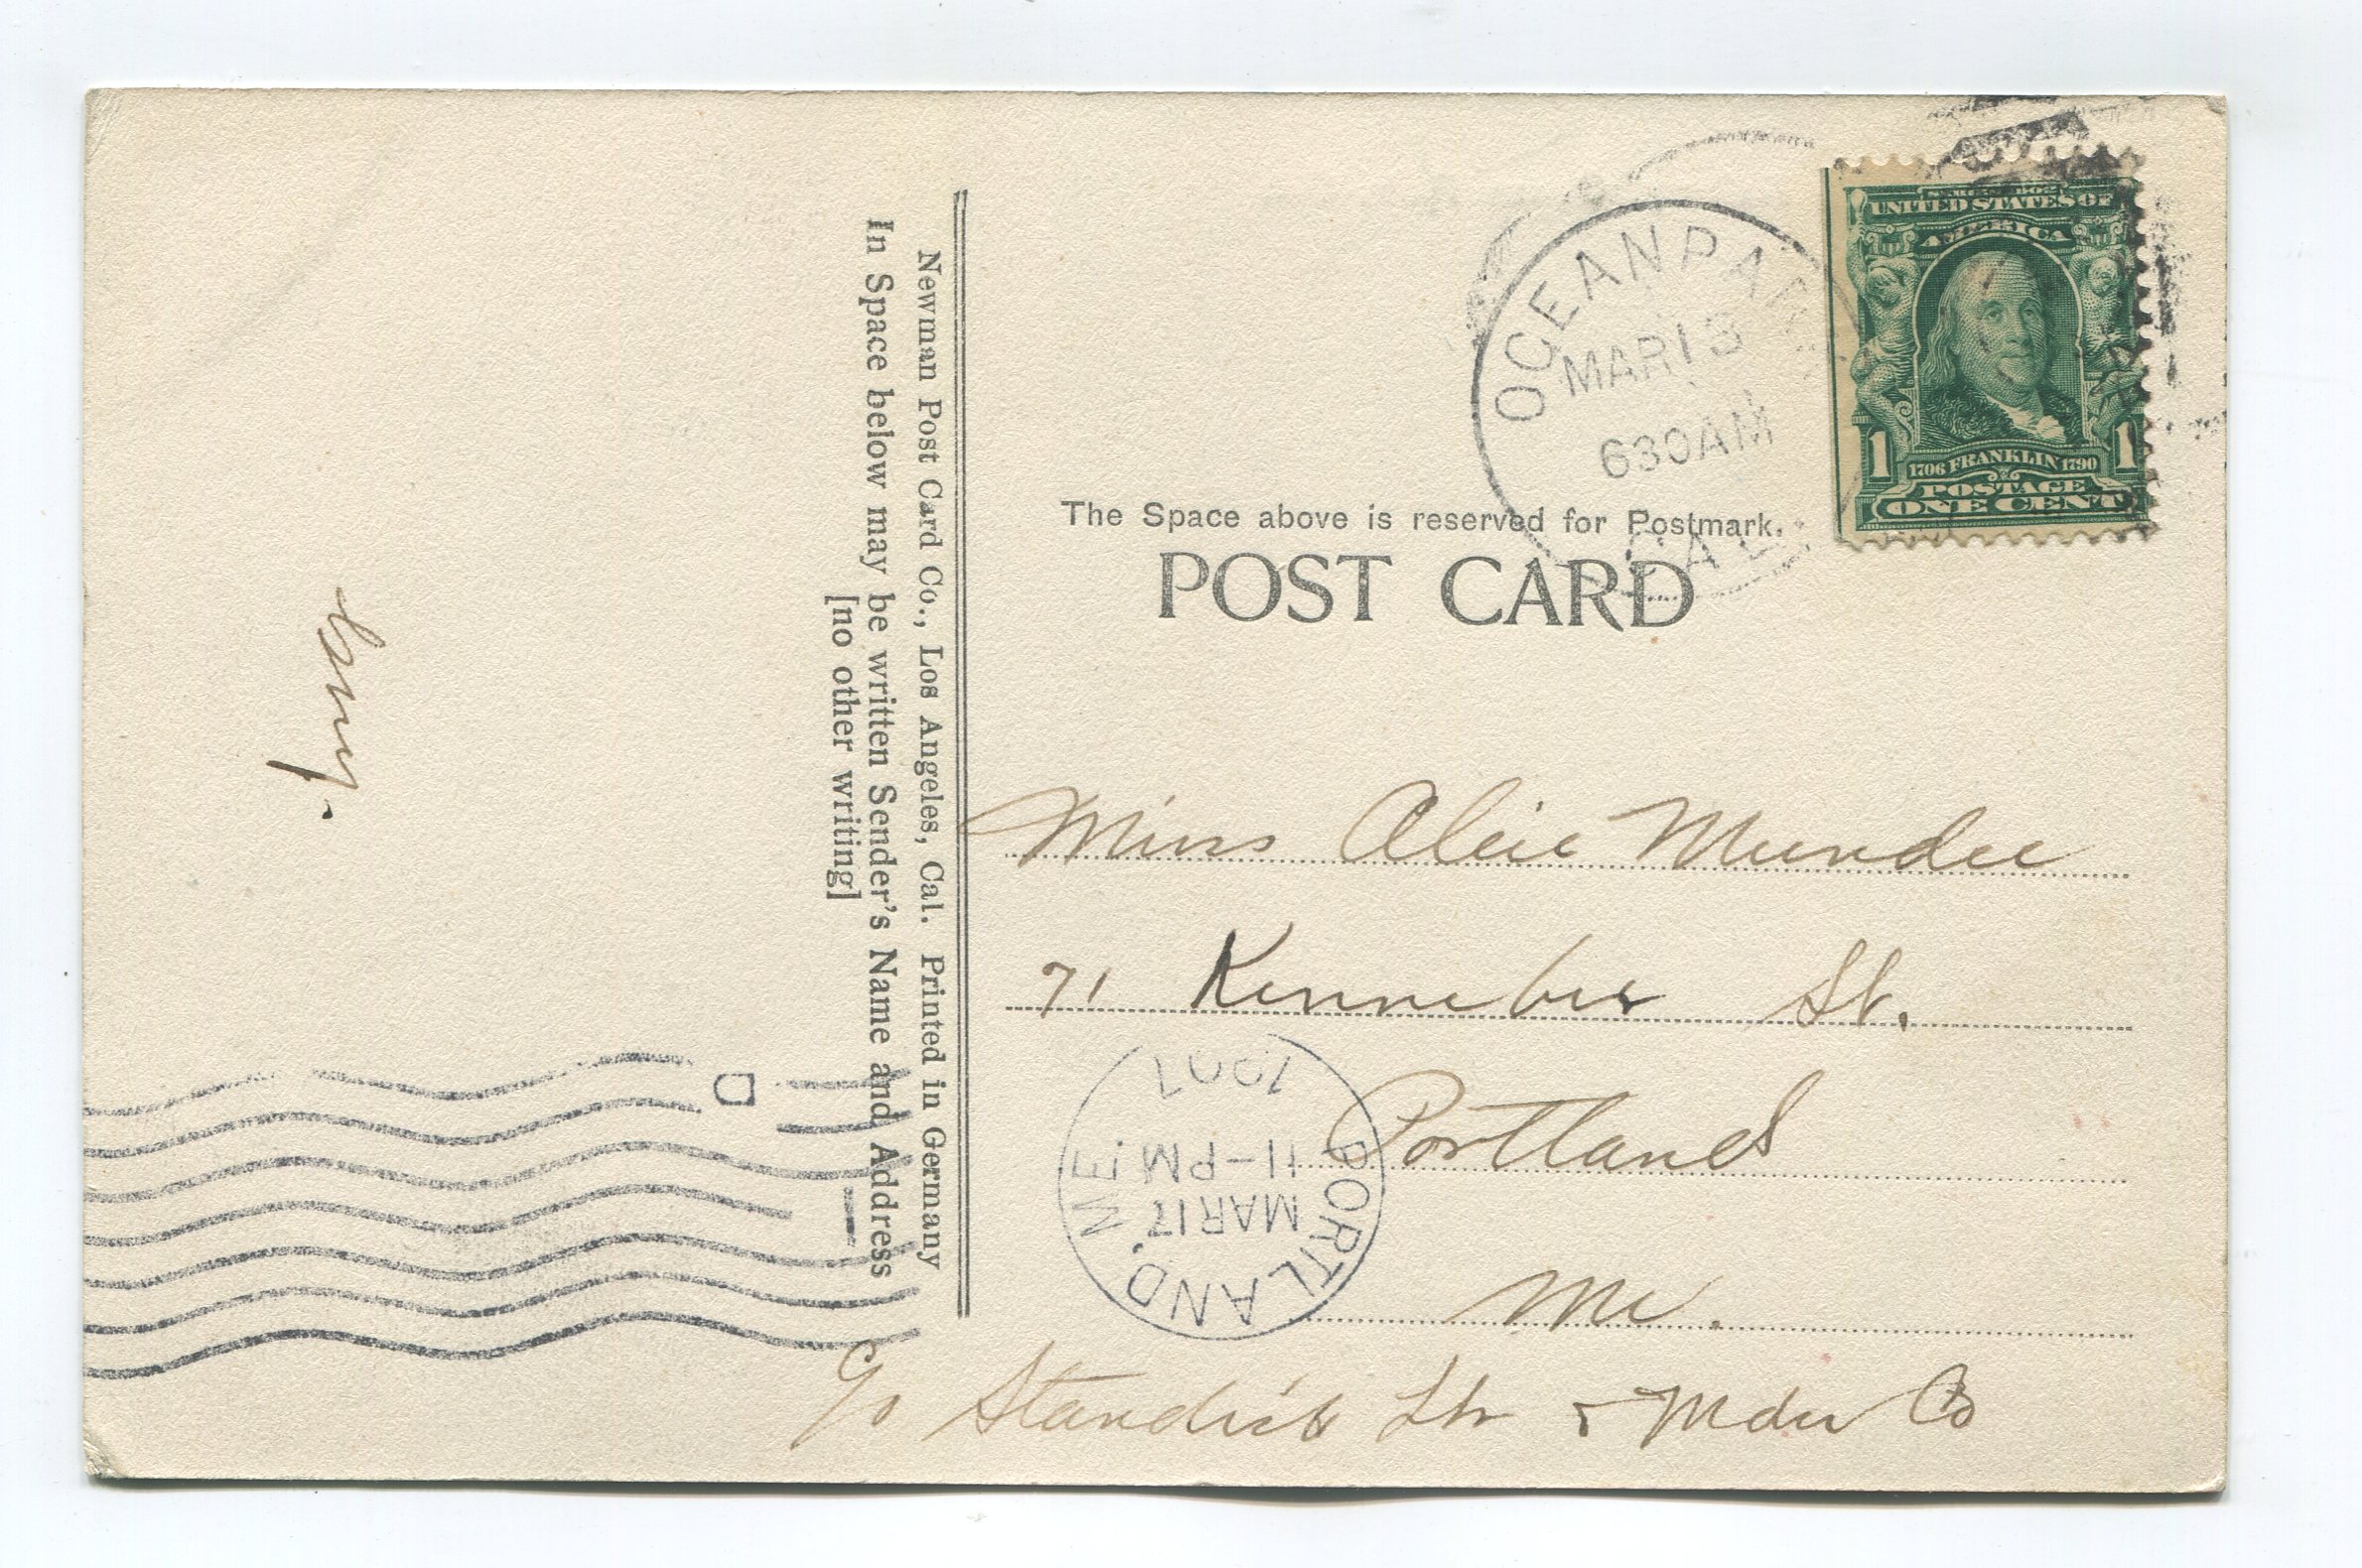 Newman Post Card Co., Los Angeles, Cal. Printed in Germany
In Space below may be written Sender's Name and Address
[no other writing]
OCEANPARK
MAR13
630AM
CAL.
SERIES 1902
UNITED STATES OF
AMERICA
1 1706 FRANKLIN 1790 1
POSTAGE
ONE CENT
The Space above is reserved for Postmark.
POST CARD
Miss Alcie Mundee
71 Kennebec St.
Portland
Me.
c/o Standish & Co
PORTLAND, ME.
MAR17
11-PM
1907
D